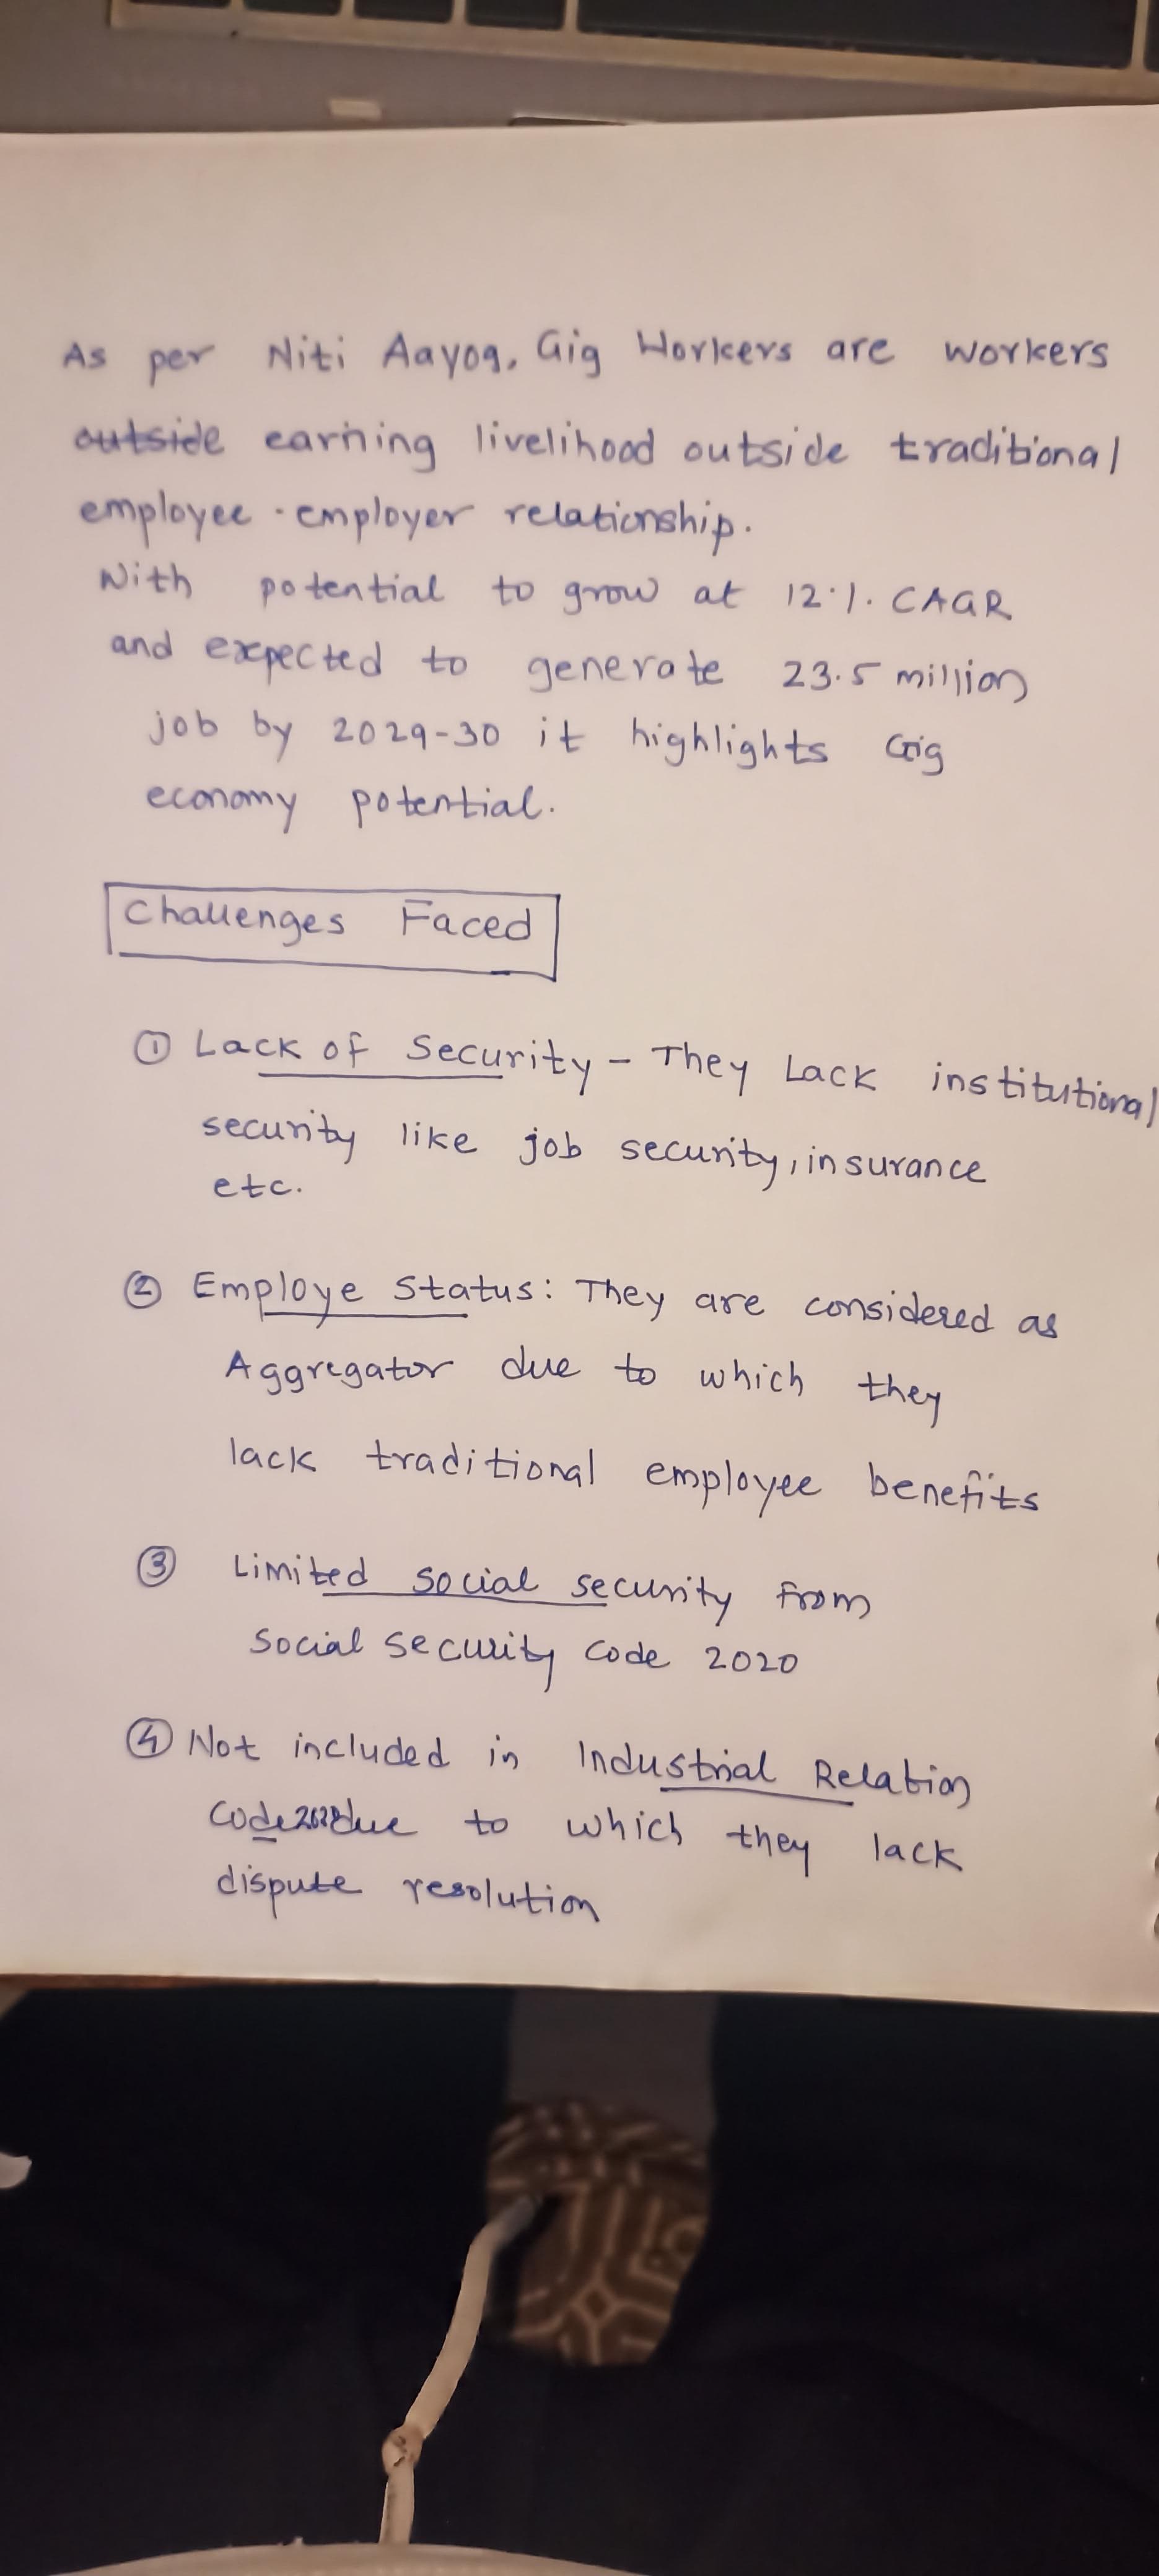 As per Niti Aayog, Gig Workers are workers
outside earning livelihood outside traditional
employee-employer relationship.
With potential to grow at 12% CAGR
and expected to generate 23.5 million
job by 2029-30 it highlights Gig
economy potential.
Challenges Faced
① Lack of Security - They Lack institutional
security like job security, insurance
etc.
② Employe Status: They are considered as
Aggregator due to which they
lack traditional employee benefits
③ Limited social security from
Social Security Code 2020
④ Not included in Industrial Relation
Code due to which they lack
dispute resolution